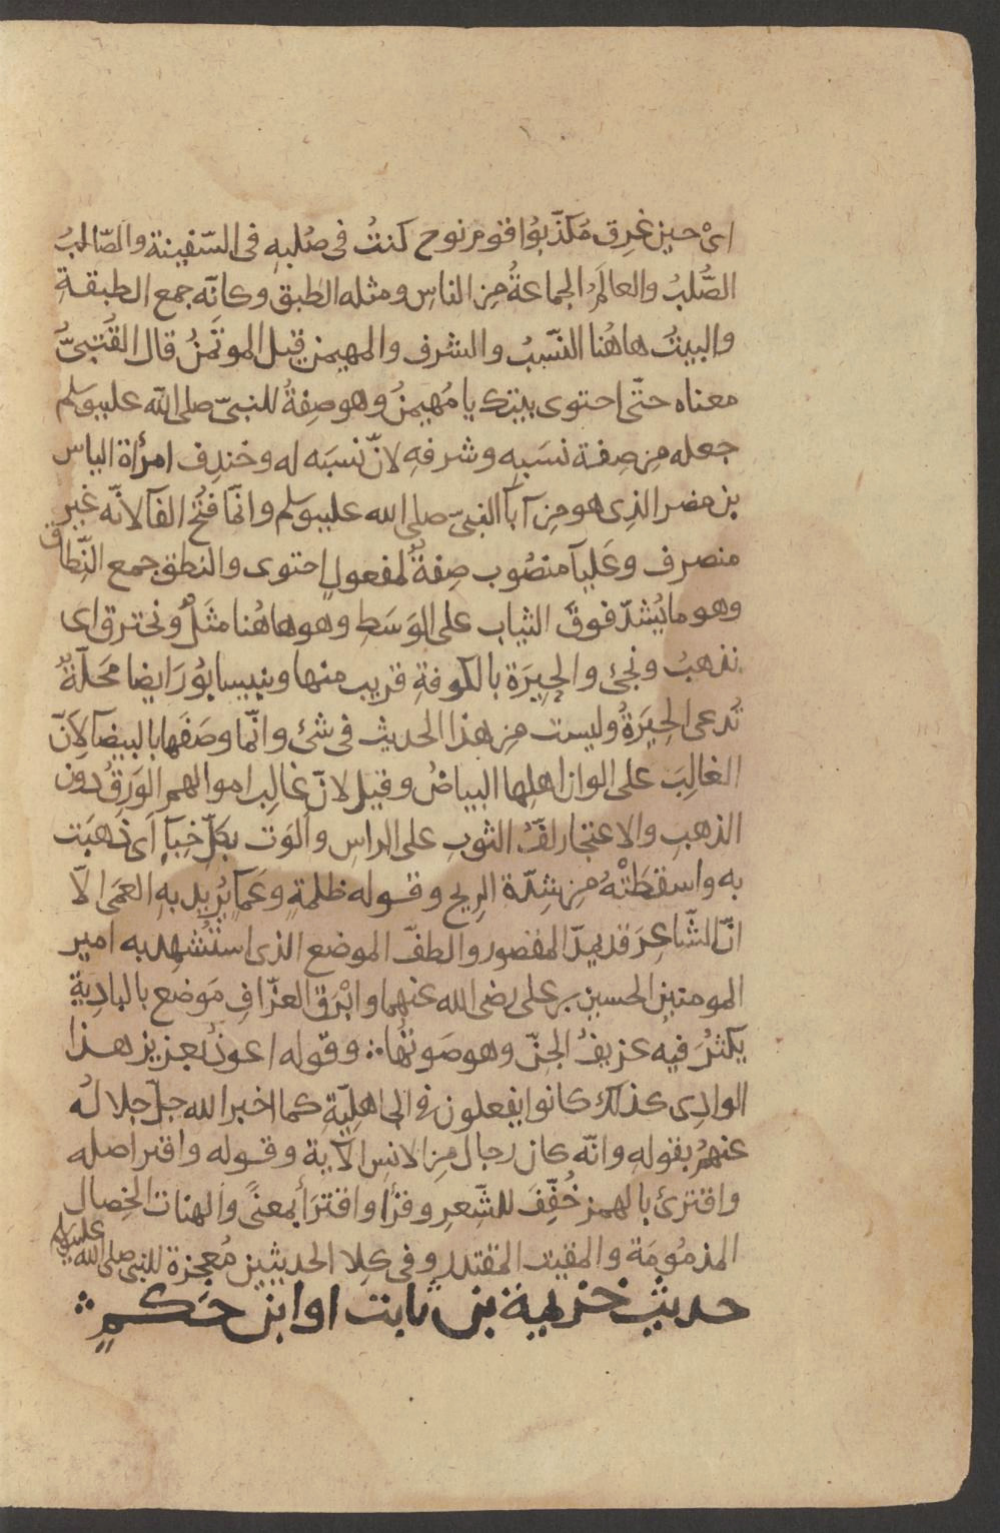 اىْ حين غرِق مُكذّبُوا قوم نوح كنتُ فى صُلبهِ فى السّفينة والصّالبُ
الصُّلبُ والعالَمُ الجماعةُ مِن الناسِ ومثله الطبق وكانّه جمع الطبقةِ
والبيتُ هاهُنا النّسَبُ والشرف والمهيمن قيل الموتَمنُ قال القُتَبىُّ
معناه حتّى احتوى بيتك يا مُهيمنُ وهو صِفةُ للنبىّ صلى الله عليه وسلم
جعله مِن صِفة نسَبِهِ وشرفهِ لانّ نسَبَه له وخندِف امرأة الياس
بن مضر الذِى هو مِن آبآ النبىّ صلى الله عليه وسلم وانّما فتُح الفآ لانّه غير
منصرف وعَليآ منصُوب صِفةٌ لمفعول احتوى والنطق جمع النِّطاق
وهو ما يُشدّ فوقَ الثياب على الوَسَطِ وهو هاهُنا مثَلٌ ونخترق اى
نذهبُ ونجئ والحِيرَة بالكوفةِ قريب منها وبنيسابوُرَ ايضا مَحَلّةٌ
تُدعى الحِيَرةُ وليست مِن هذا الحديث فى شئ وانّما وصَفَها بالبيضآ لاَنّ
الغالِبَ على الوان اهلِها البياضُ وقيل لانّ غالِب اموالهم الوَرِقُ دوُن
الذهبِ والاعتجار لفّ الثوبِ على الراسِ والوَت بكلّ خِبآءٍ اَى ذهبَت
به واسقطَتْهُ مِن شِدّة الرِيح وقوله ظلمةٍ وعَمآءٍ يُرِيد بهِ العَمَى الاّ
انّ الشّاعِرَ قد يمدّ المقصور والطفّ الموضع الذى استُشهِد به امير
المومنين الحسين بن على رضى الله عنهما وابْرَق العزّافِ مَوضع بالبادِيةِ
يكثرُ فيه عزيفُ الجنّ وهو صَوتُها ؞ وقوله اعوذُ بعزيز هذا
الوادِى كذلك كانوا يفعلون فى الجاهليّةِ كما اخبر الله جلّ جلالهُ
عنهمُ بقوله وانّه كان رجال مِن الانسِ الآية وقوله واقتر اصله
واقترئ بالهمز خُفّفَ للشّعرِ وقرَأ واقترَأ بمعنىً والهنات الخِصال
المذمُومَة والمقيت المقتدر وفى كِلا الحديثين مُعجزة للنبى صلى الله عليه وسلم
حديث خزيمة بن ثابت او ابن حَكيمٍ ؞